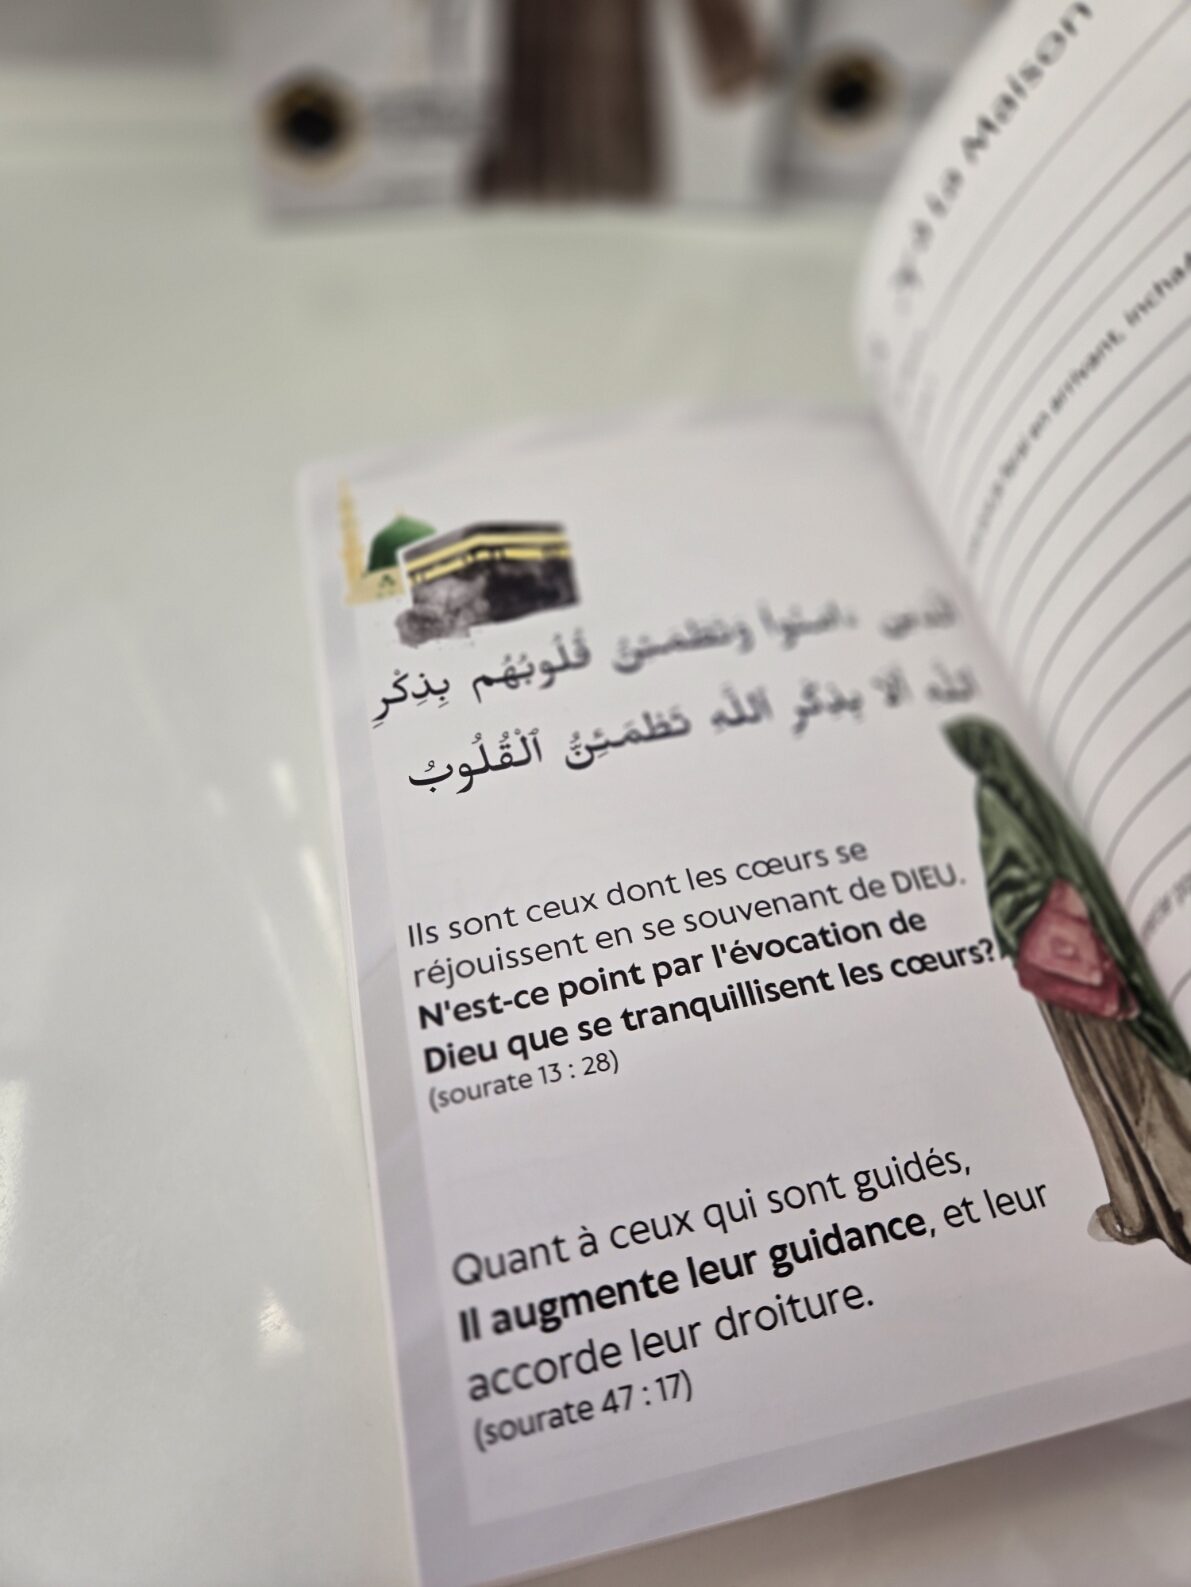 à La Maison
en arrivant,
ٱلَّذِينَ ءَامَنُوا۟ وَتَطْمَئِنُّ قُلُوبُهُم بِذِكْرِ
ٱللَّهِ أَلَا بِذِكْرِ ٱللَّهِ تَطْمَئِنُّ ٱلْقُلُوبُ
Ils sont ceux dont les cœurs se
réjouissent en se souvenant de DIEU.
N'est-ce point par l'évocation de
Dieu que se tranquillisent les cœurs?
(sourate 13 : 28)
Quant à ceux qui sont guidés,
Il augmente leur guidance, et leur
accorde leur droiture.
(sourate 47 : 17)